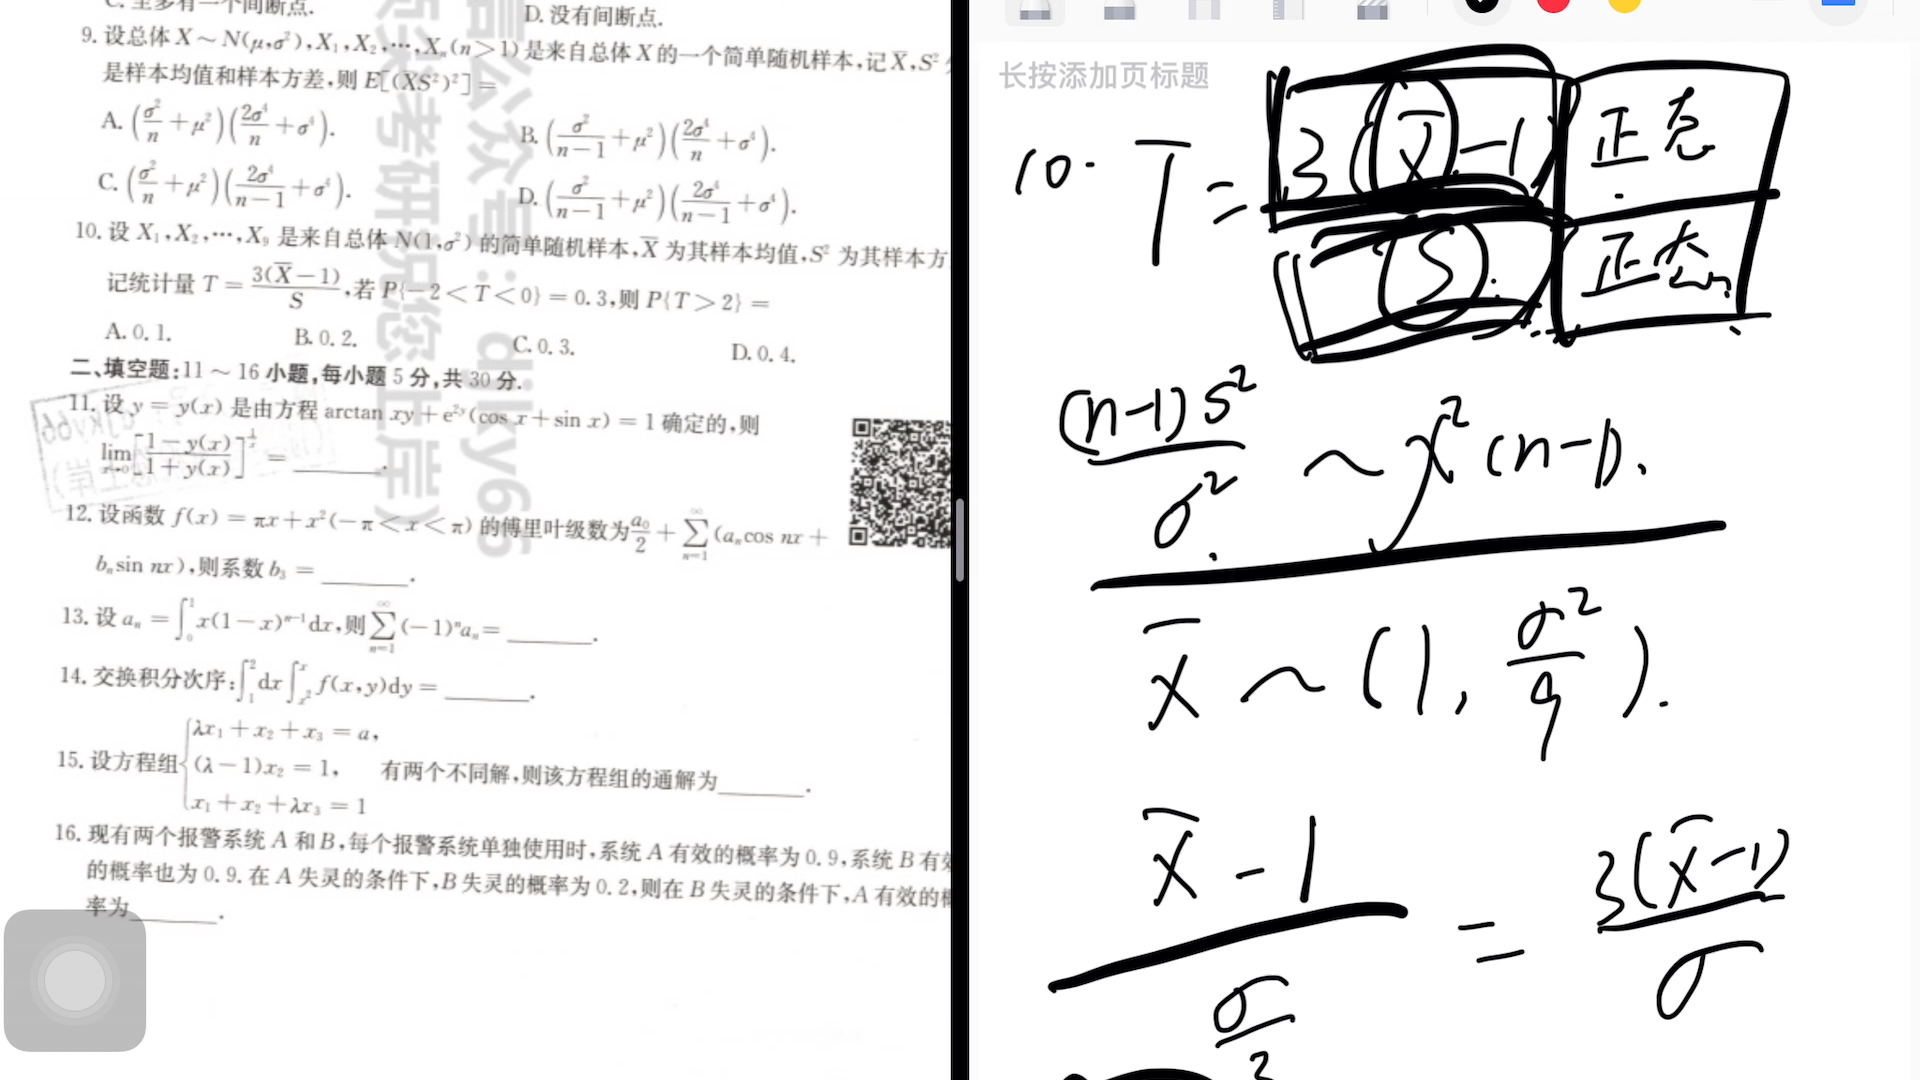 C. 至多有一个间断点.
D. 没有间断点.
9. 设总体 X ~ N(μ,σ²), X₁,X₂,⋯,Xₙ(n>1)是来自总体 X 的一个简单随机样本,记 X̄,S²
是样本均值和样本方差,则 E[(X̄S²)²] =
A. (σ²/n + μ²)(2σ⁴/n + σ⁴).
B. (σ²/(n−1) + μ²)(2σ⁴/n + σ⁴).
C. (σ²/n + μ²)(2σ⁴/(n−1) + σ⁴).
D. (σ²/(n−1) + μ²)(2σ⁴/(n−1) + σ⁴).
10. 设 X₁,X₂,⋯,X₉ 是来自总体 N(1,σ²) 的简单随机样本,X̄ 为其样本均值,S² 为其样本方
记统计量 T = 3(X̄−1)/S,若 P{−2<T<0} = 0.3,则 P{T>2} =
A. 0.1.
B. 0.2.
C. 0.3.
D. 0.4.
二、填空题:11 ~ 16 小题,每小题 5 分,共 30 分.
11. 设 y = y(x) 是由方程 arctan xy + e²ʸ(cos x + sin x) = 1 确定的,则
lim x→0 [(1−y(x))/(1+y(x))]^(1/x) = ______.
12. 设函数 f(x) = πx + x²(−π<x<π) 的傅里叶级数为 a₀/2 + ∑_{n=1}^{∞} (aₙcos nx +
bₙsin nx),则系数 b₃ = ______.
13. 设 aₙ = ∫₀¹ x(1−x)ⁿ⁻¹dx,则 ∑_{n=1}^{∞} (−1)ⁿaₙ = ______.
14. 交换积分次序:∫₁² dx ∫_{x²}^{x} f(x,y)dy = ______.
λx₁ + x₂ + x₃ = a,
15. 设方程组 (λ−1)x₂ = 1, 有两个不同解,则该方程组的通解为______.
x₁ + x₂ + λx₃ = 1
16. 现有两个报警系统 A 和 B,每个报警系统单独使用时,系统 A 有效的概率为 0.9,系统 B 有
的概率也为 0.9. 在 A 失灵的条件下,B 失灵的概率为 0.2,则在 B 失灵的条件下,A 有效的
率为______.
长按添加页标题
10. T = 3(X̄−1)
S
正态
正态
(n−1)S²/σ² ~ χ²(n−1).
X̄ ~ (1, σ²/9).
(X̄−1)/(σ/3) = 3(X̄−1)/σ